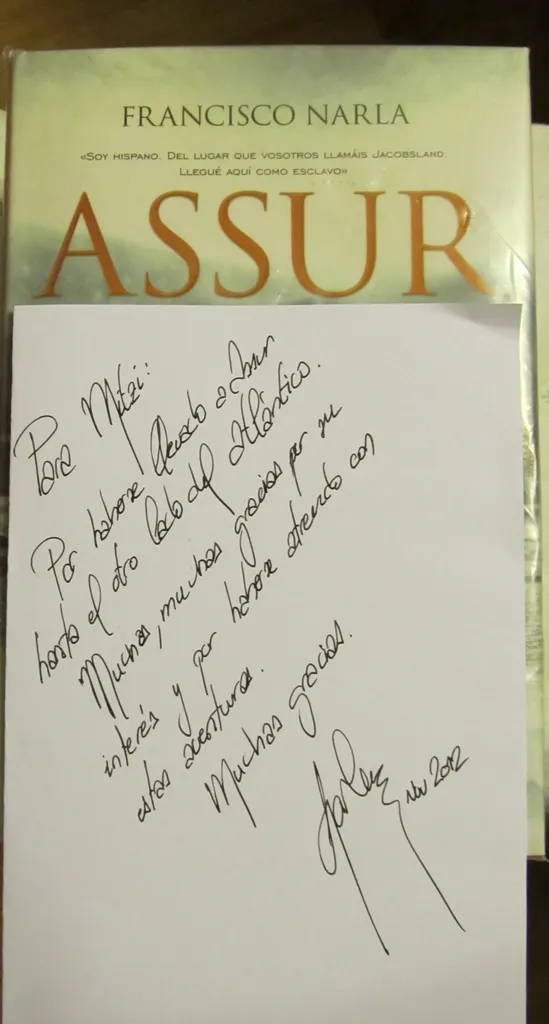 FRANCISCO NARLA
«SOY HISPANO. DEL LUGAR QUE VOSOTROS LLAMÁIS JACOBSLAND.
LLEGUÉ AQUÍ COMO ESCLAVO»
ASSUR
Para Mitzi:
Por haberse llevado a Assur
hasta el otro lado del atlántico.
Muchas, muchas gracias por su
interés y por haberse atrevido con
estas aventuras.
Muchas gracias.
Nov 2012